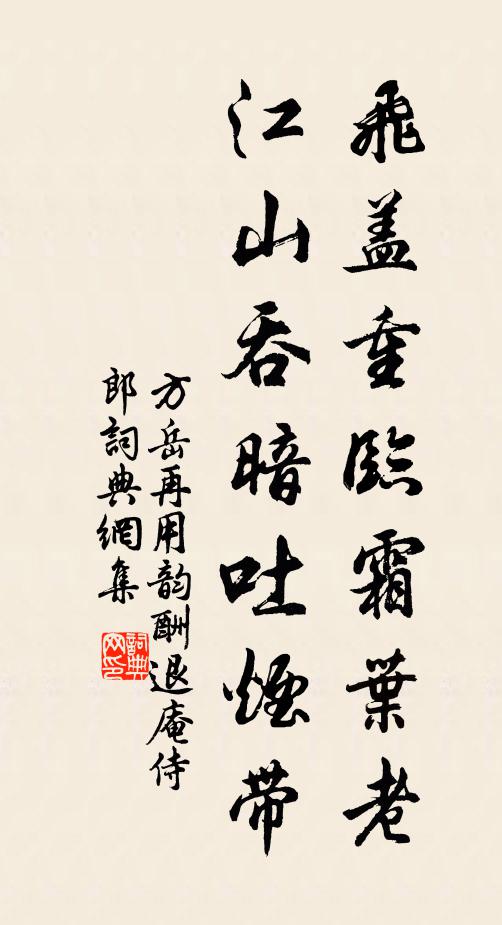 飛盖重臨霜葉老
江山吞暗吐煙帶
方岳再用韵酬退庵侍
郎詞典網集
詞典網印